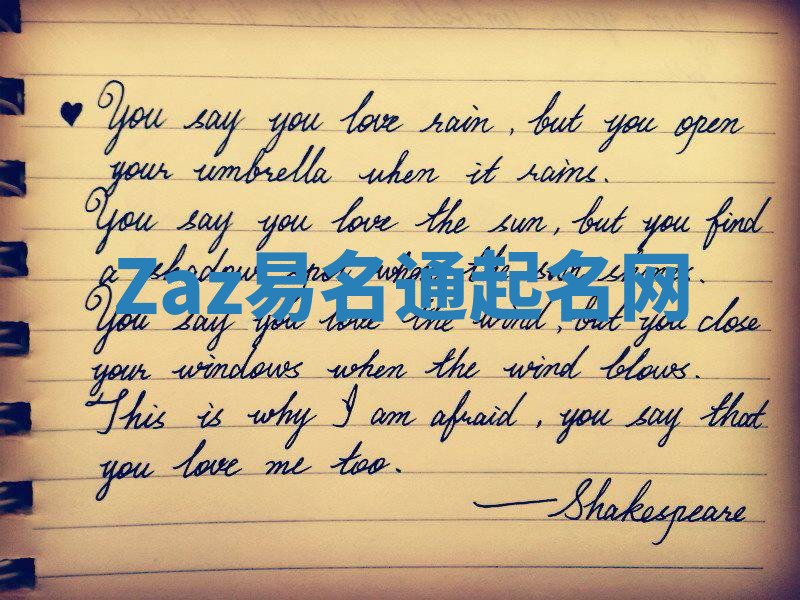 ♥ You say you love rain, but you open
your umbrella when it rains.
You say you love the sun, but you find
a shadow spot when the sun shines.
Zaz易名通起名网
You say you love the wind, but you close
your windows when the wind blows.
This is why I am afraid, you say that
you love me too.
—Shakespeare